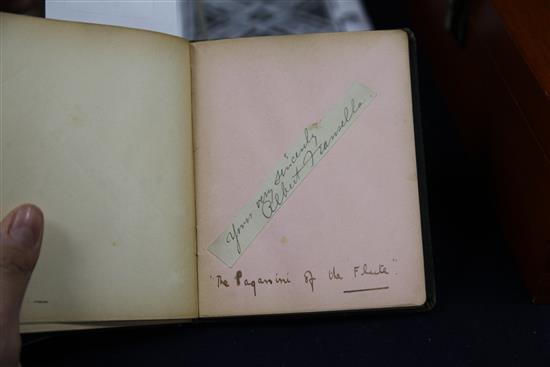 Yours very sincerely
Albert Fransella.
"The Paganini of the Flute".